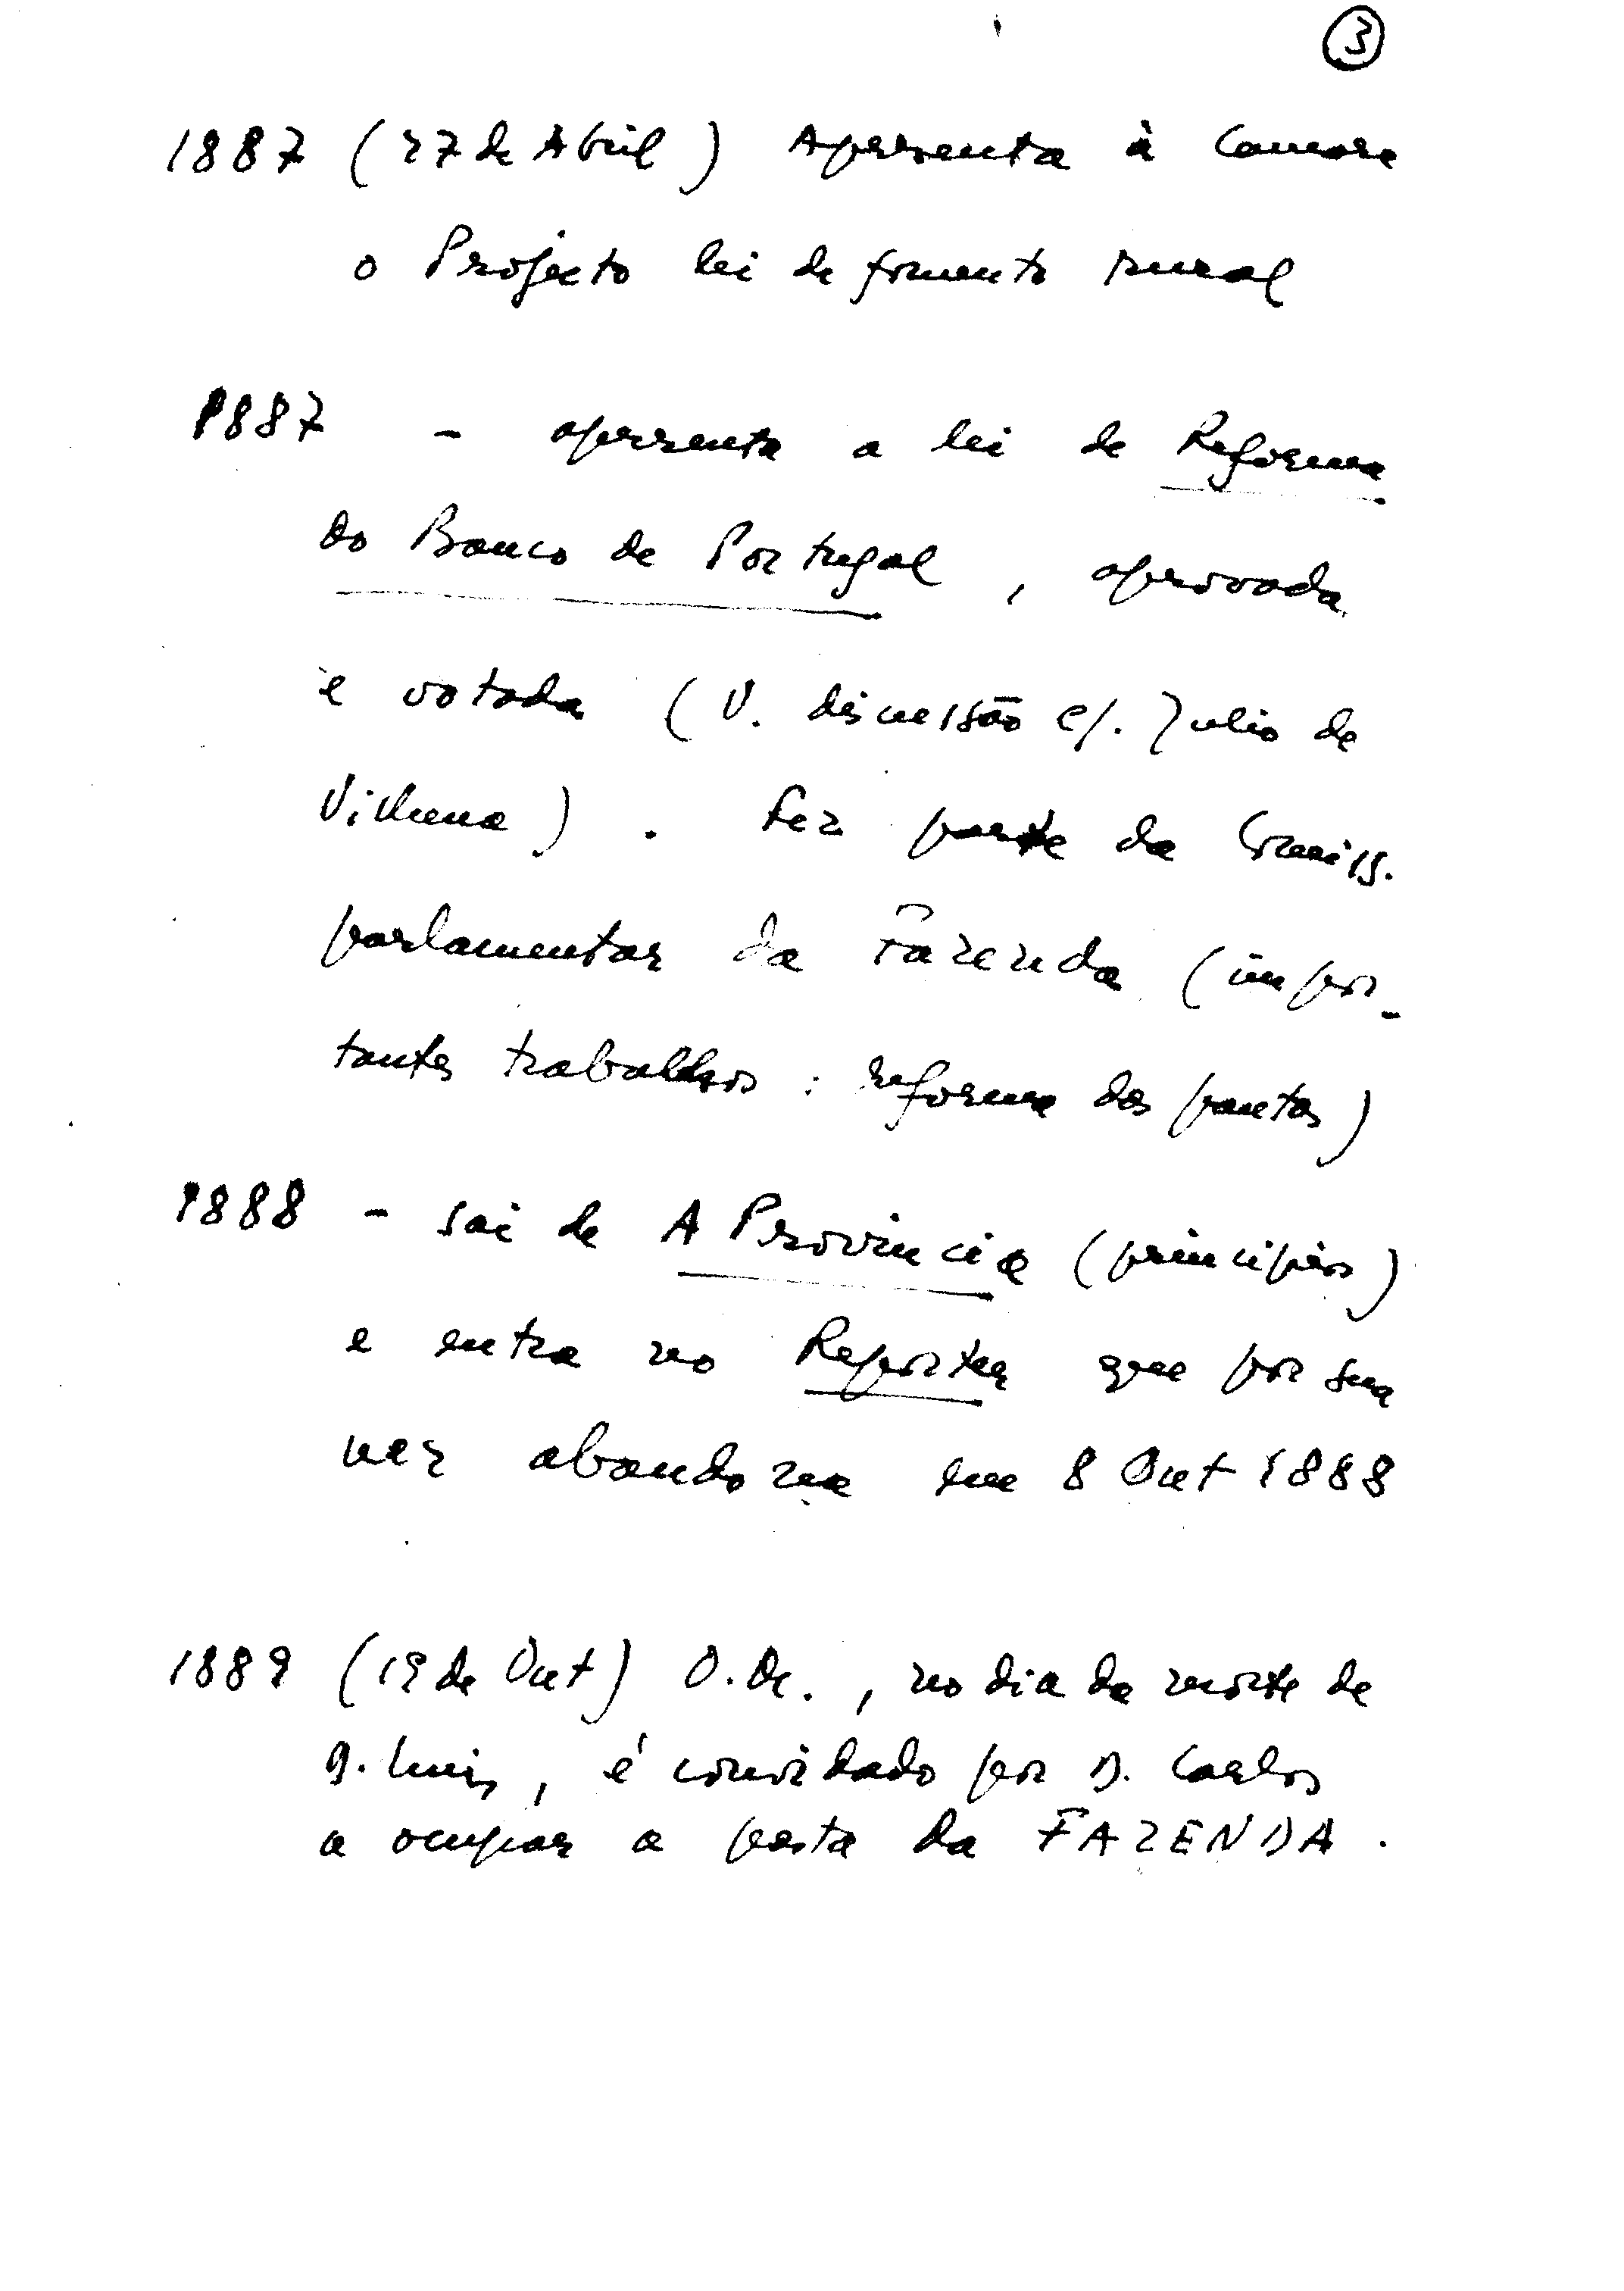 3
1887 (27 de Abril) Apresenta à Camara
o Projecto lei de fomento rural
1887 - apresenta a lei de Reforma
do Banco de Portugal, aprovada
e votada (V. discussão c/. Julio de
Vilhena). Fez parte da Comiss.
parlamentar da Fazenda (impor-
tantes trabalhos: reforma das pautas)
1888 - sai de A Provincia (principios)
e entra no Reporter que por sua
vez abandona em 8 Out 1888
1889 (19 de Out) O. M., no dia da morte de
D. Luis, é convidado por D. Carlos
a ocupar a pasta da FAZENDA.